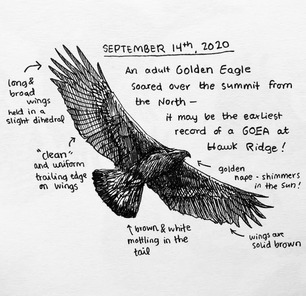 SEPTEMBER 14th, 2020
An adult Golden Eagle
soared over the summit from
the North –
it may be the earliest
record of a GOEA at
Hawk Ridge!
long &
broad
wings
held in a
slight dihedral
"clean"
and uniform
trailing edge
on wings
golden
nape - shimmers
in the sun!
↑ brown & white
mottling in the
tail
wings are
solid brown